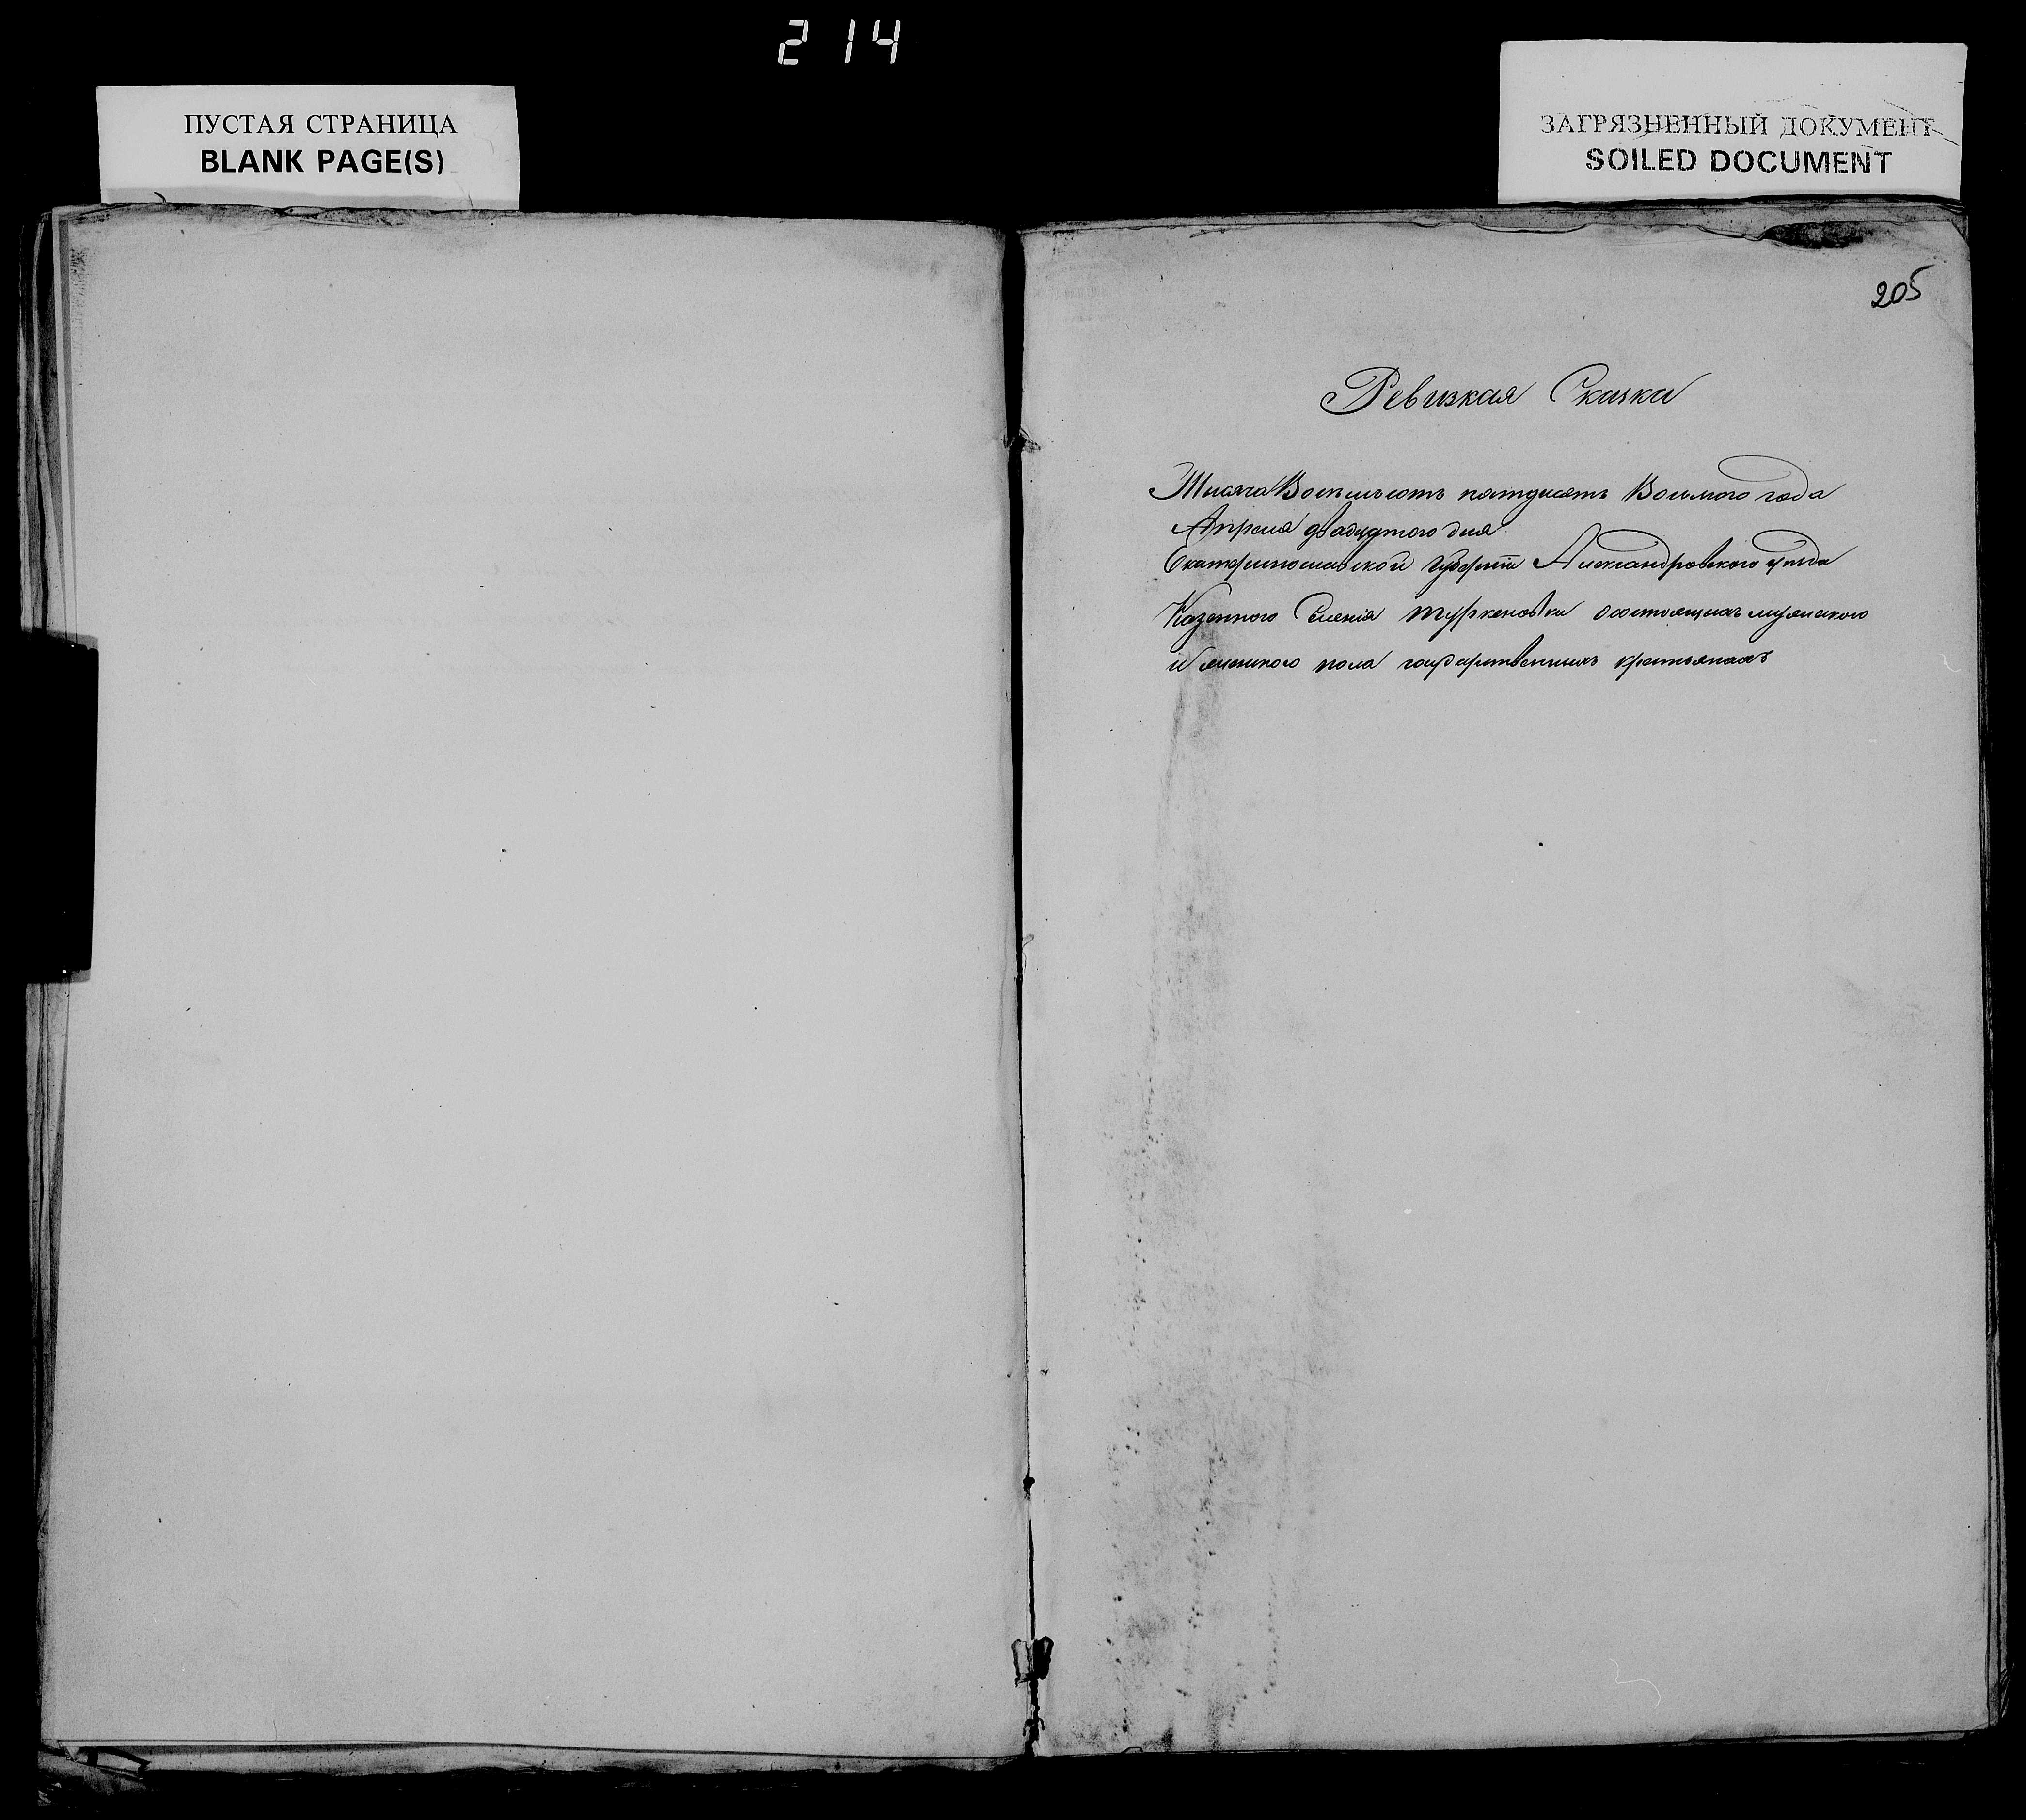 214
ПУСТАЯ СТРАНИЦА
BLANK PAGE(S)
ЗАГРЯЗНЕННЫЙ ДОКУМЕНТ
SOILED DOCUMENT
205
Ревизкая Сказка
Тысяча Восьмьсотъ пятдесятъ Восьмого года
Апреля двадцятого дня
Екатеринославской Губернiи Александровского уезда
Казенного Селенiя Туркеновки о состоящихъ мужеского
и женского пола государственныхъ крестьянахъ